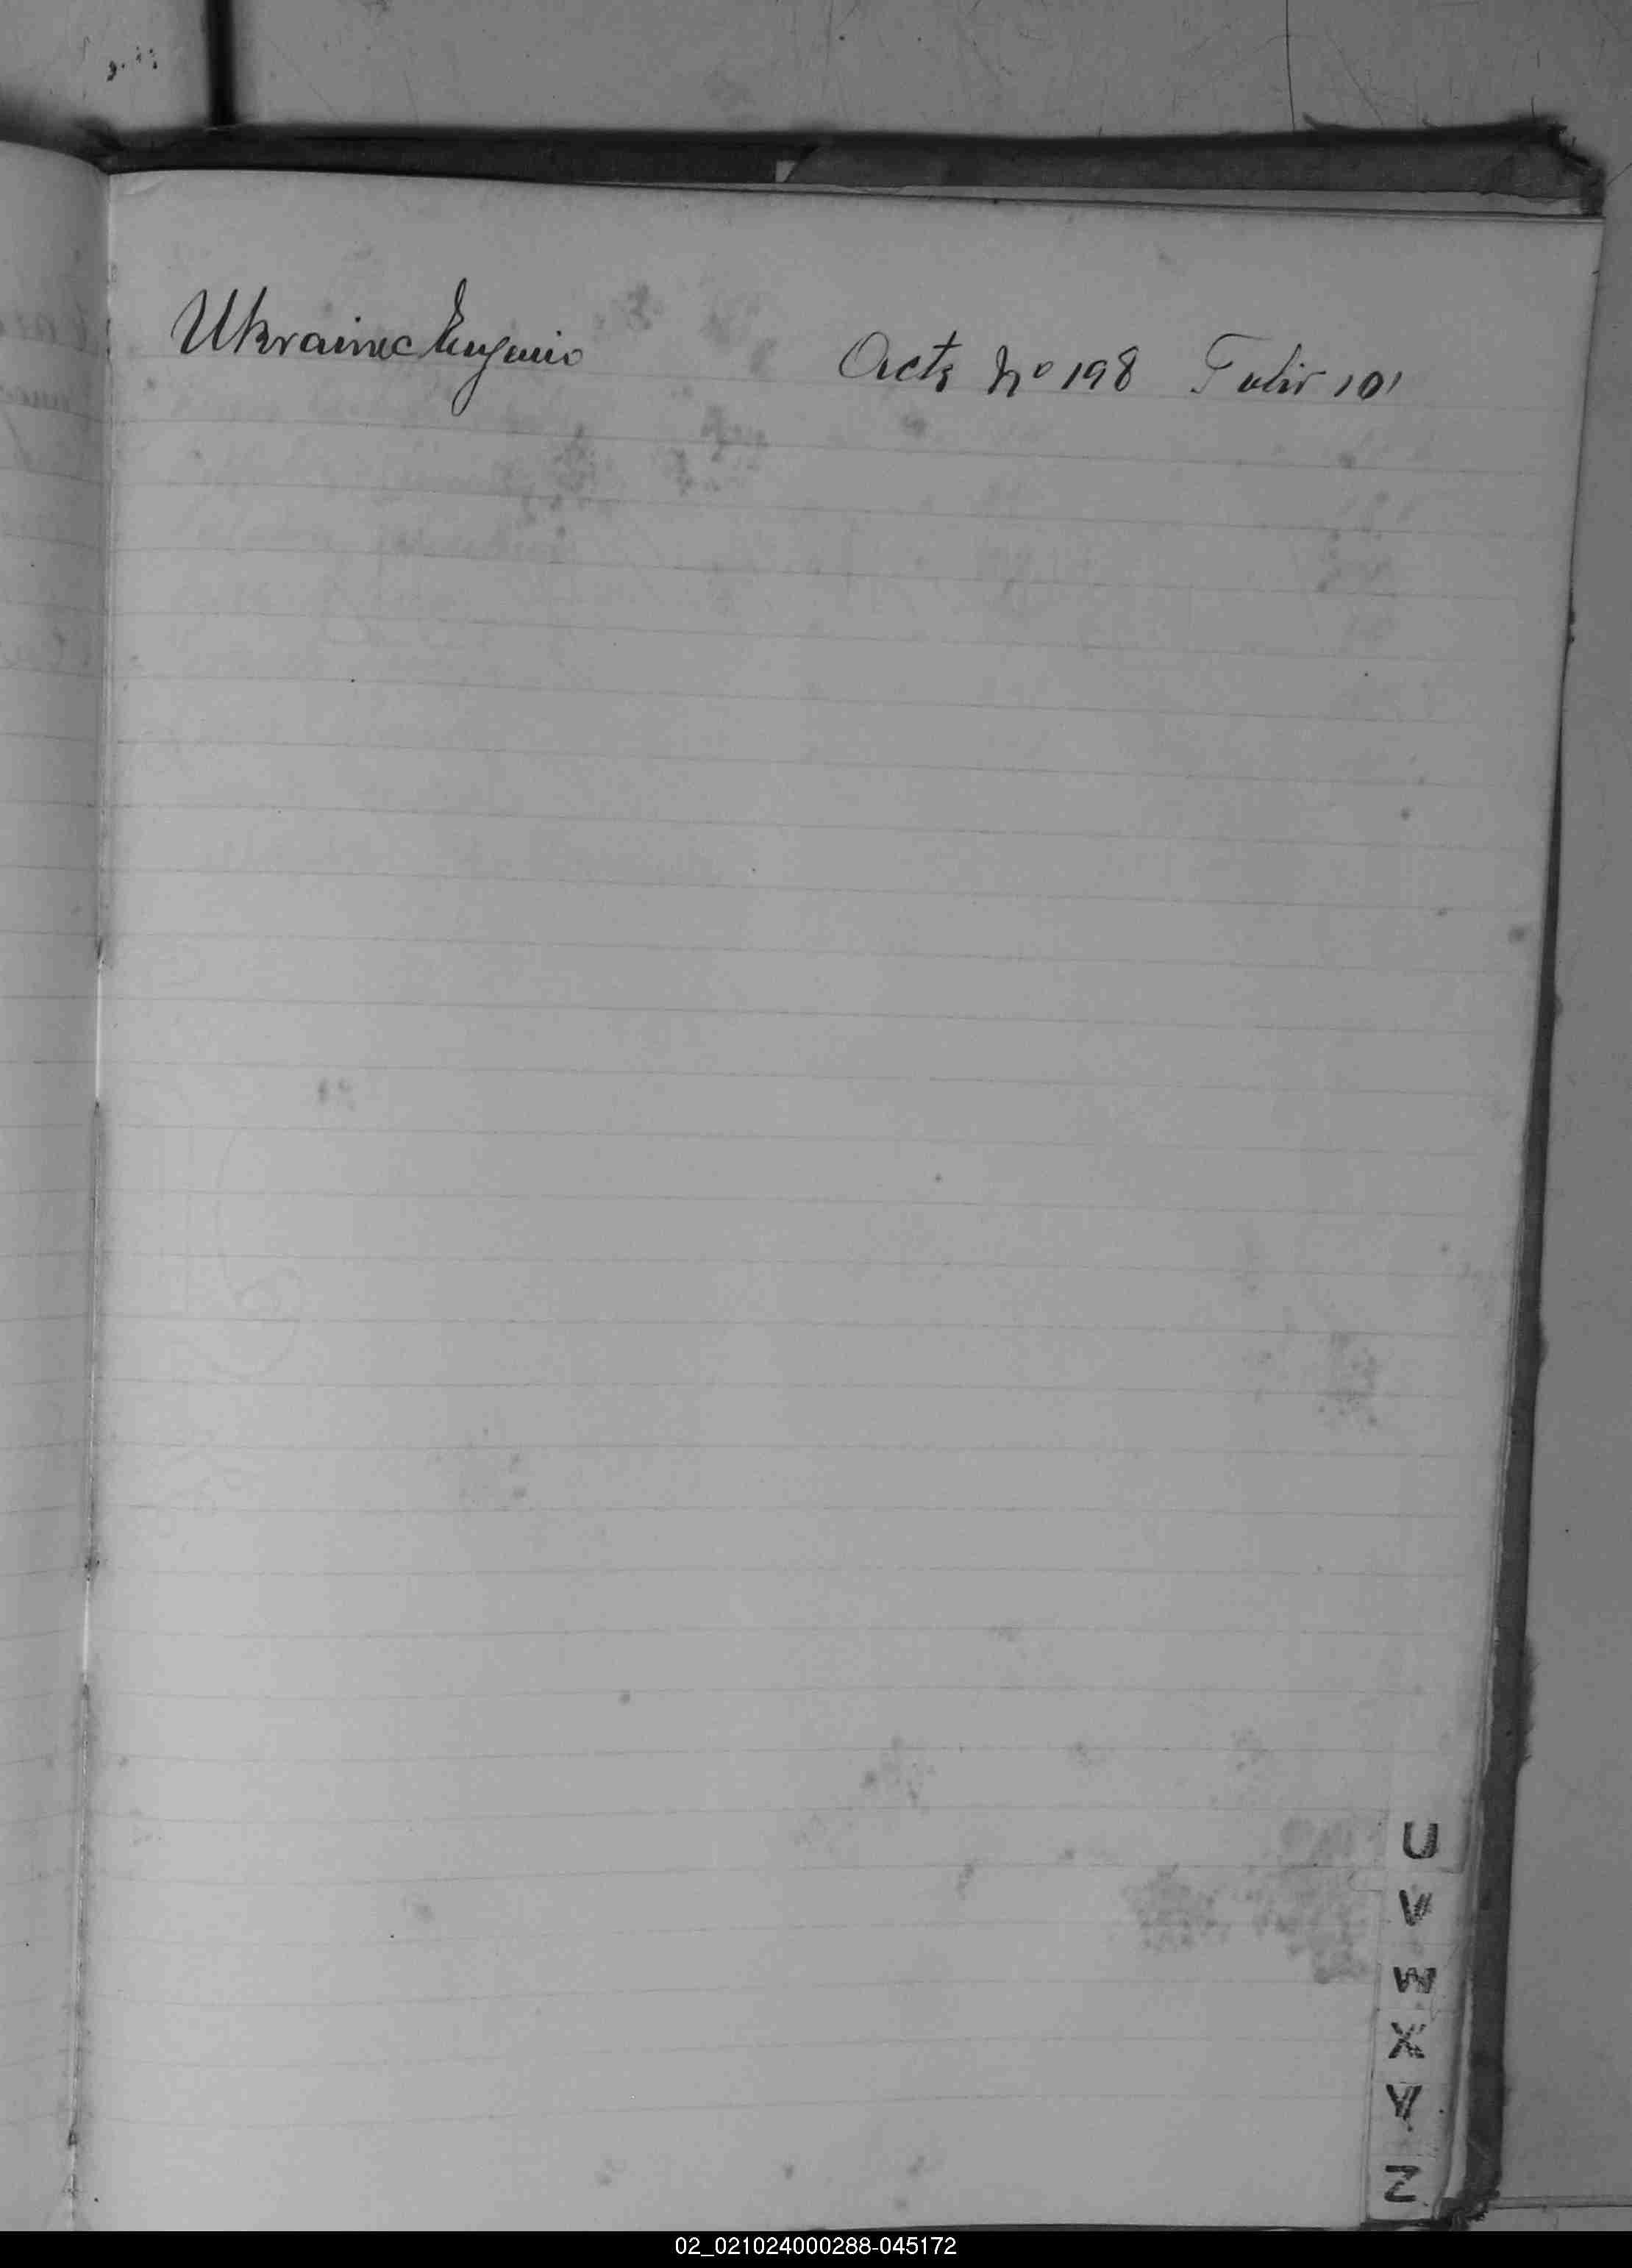 Ukrainec Eugenio Acta Nº 198 Folio 101
U
V
W
X
Y
Z
02_021024000288-045172